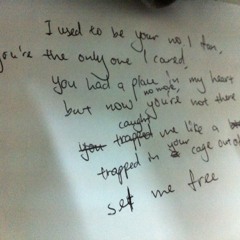 I used to be your no.1 fan,
you're the only one I cared,
you had a place in my heart
but now no more, you're not there
you trapped caught me like a b
trapped in your cage out of
set me free